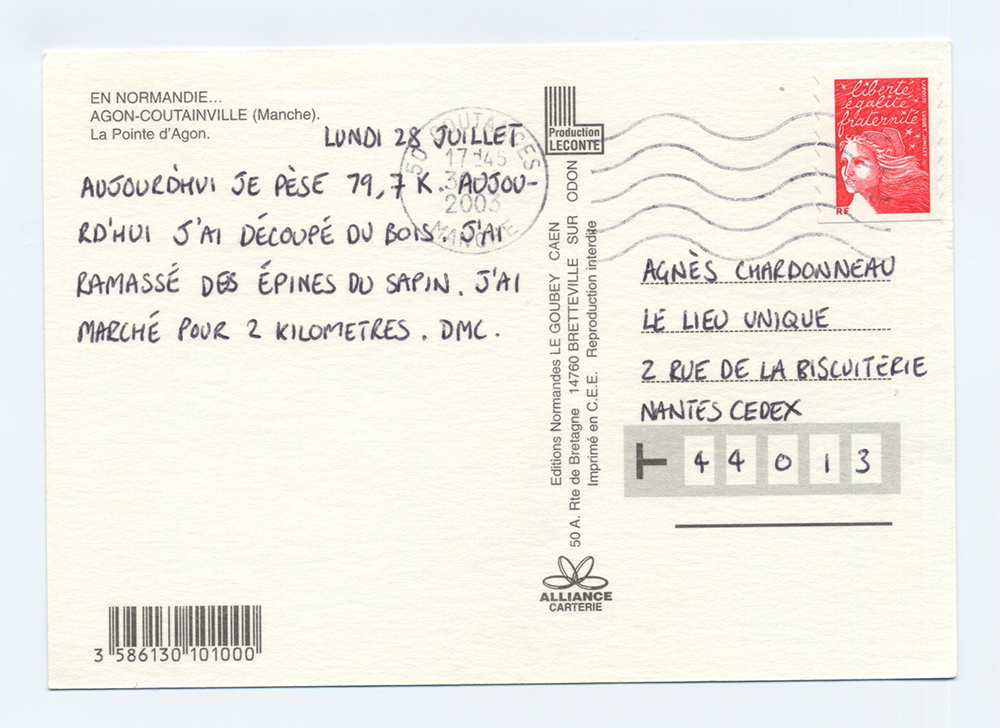 EN NORMANDIE...
AGON-COUTAINVILLE (Manche).
La Pointe d'Agon.
LUNDI 28 JUILLET
AUJOURD'HUI JE PÈSE 79,7 K. AUJOU-
RD'HUI J'AI DÉCOUPÉ DU BOIS. J'AI
RAMASSÉ DES ÉPINES DU SAPIN. J'AI
MARCHÉ POUR 2 KILOMETRES. DMC.
50 COUTANCES
17H45
2003
MANCHE
Production
LECONTE
Editions Normandes LE GOUBEY CAEN
50 A. Rte de Bretagne 14760 BRETTEVILLE SUR ODON
Imprimé en C.E.E. Reproduction interdite
ALLIANCE
CARTERIE
liberté
égalité
fraternité
RF
AGNÈS CHARDONNEAU
LE LIEU UNIQUE
2 RUE DE LA BISCUITERIE
NANTES CEDEX
T 44013
3 586130 101000